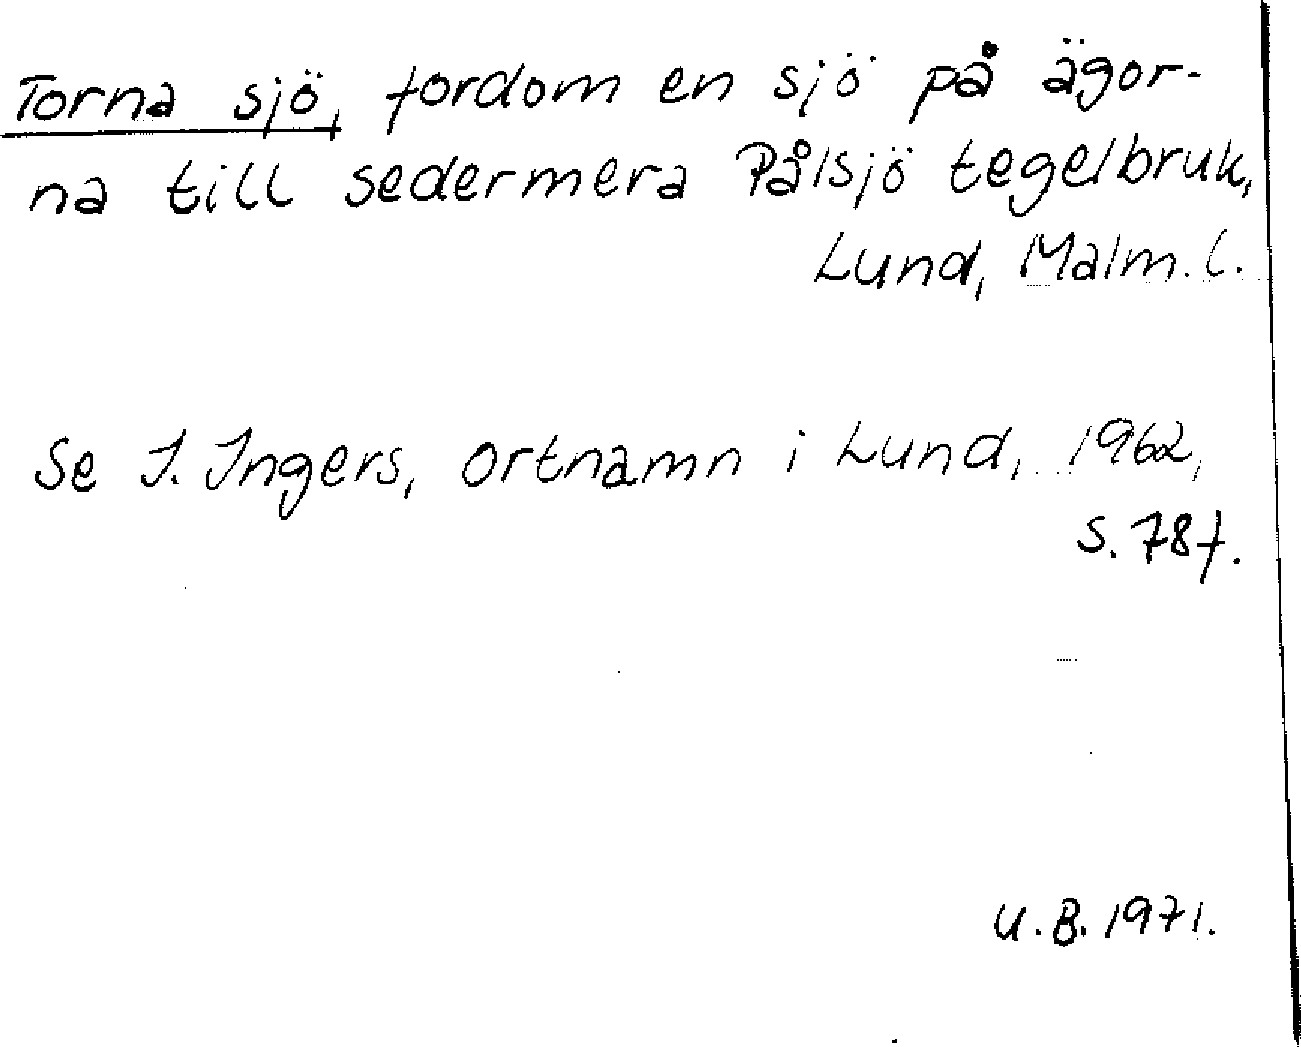 Torna sjö, fordom en sjö på ägor-
na till sedermera Pålsjö tegelbruk,
Lund, Malm. l.
Se I. Ingers, Ortnamn i Lund, 1962,
s. 78f.
U.B. 1971.